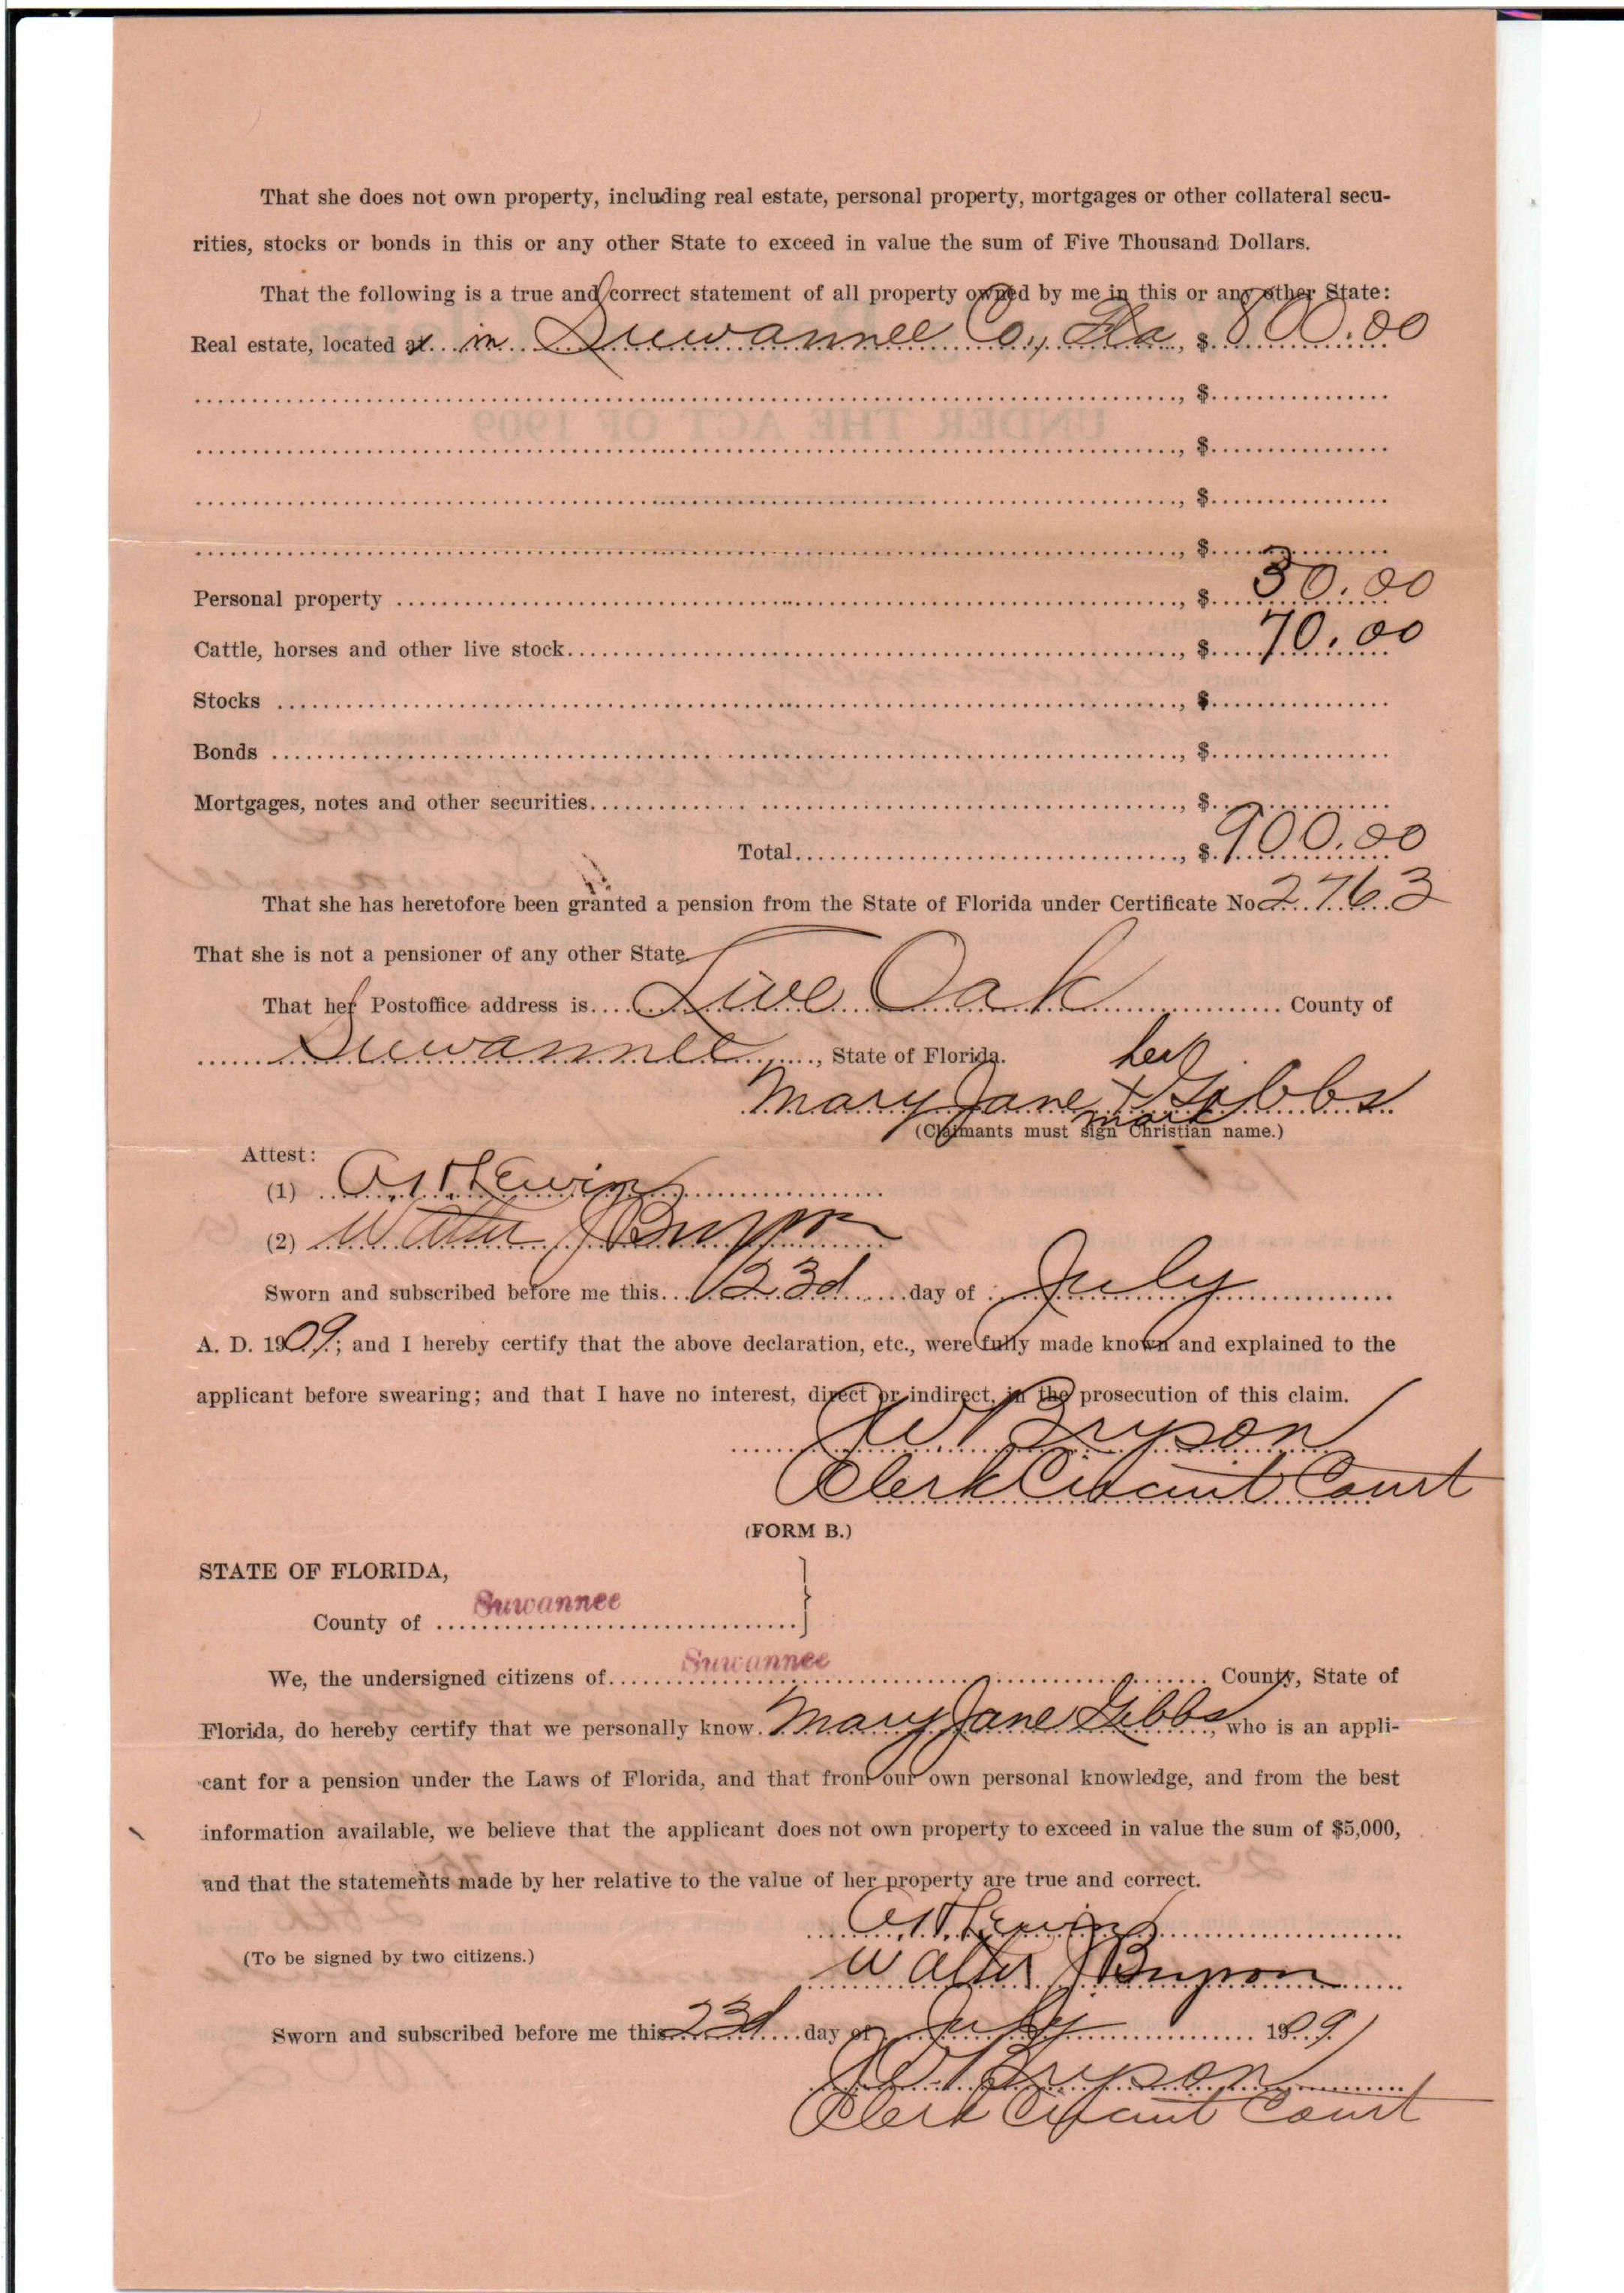 That she does not own property, including real estate, personal property, mortgages or other collateral secu-
rities, stocks or bonds in this or any other State to exceed in value the sum of Five Thousand Dollars.
That the following is a true and correct statement of all property owned by me in this or any other State:
Real estate, located at in Suwannee Co, Fla, $ 800.00
, $
, $
, $
, $
Personal property, $ 30.00
Cattle, horses and other live stock, $ 70.00
Stocks, $
Bonds, $
Mortgages, notes and other securities, $
Total, $ 900.00
That she has heretofore been granted a pension from the State of Florida under Certificate No 2763
That she is not a pensioner of any other State
That her Postoffice address is Live Oak County of
Suwannee, State of Florida.
her
Mary Jane X Gibbs
mark
(Claimants must sign Christian name.)
Attest:
(1)
(2) Walter J Bryson
Sworn and subscribed before me this 23d day of July
A. D. 1909; and I hereby certify that the above declaration, etc., were fully made known and explained to the
applicant before swearing; and that I have no interest, direct or indirect, in the prosecution of this claim.
Bryson
Clerk Circuit Court
(FORM B.)
STATE OF FLORIDA,
County of Suwannee
We, the undersigned citizens of Suwannee County, State of
Florida, do hereby certify that we personally know Mary Jane Gibbs, who is an appli-
cant for a pension under the Laws of Florida, and that from our own personal knowledge, and from the best
information available, we believe that the applicant does not own property to exceed in value the sum of $5,000,
and that the statements made by her relative to the value of her property are true and correct.
(To be signed by two citizens.)
Walter J Bryson
Sworn and subscribed before me this 23d day of July 1909
Bryson
Clerk Circuit Court